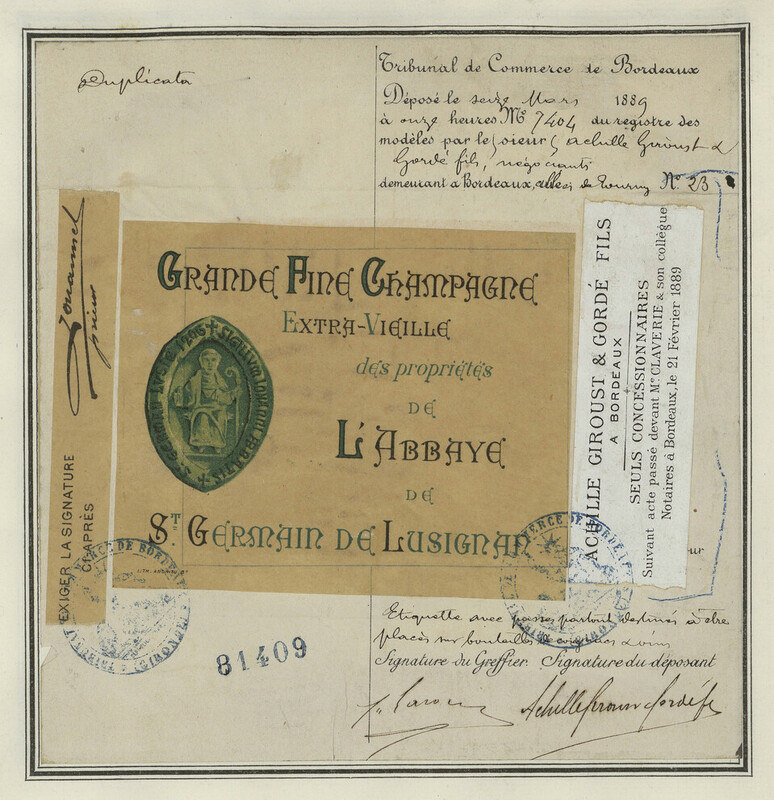 Duplicata
Tribunal de Commerce de Bordeaux
Déposé le seize Mars 1889
à onze heures Nº 7404 du registre des
modèles par le sieur Achille Giroust &
Gordé fils, négociants
demeurant à Bordeaux, allées de Tourny Nº 23
EXIGER LA SIGNATURE
CI-APRÈS
Jouannel
prieur
GRANDE FINE CHAMPAGNE
EXTRA-VIEILLE
des propriétés
DE
L'ABBAYE
DE
ST. GERMAIN DE LUSIGNAN
ACHILLE GIROUST & GORDÉ FILS
A BORDEAUX
SEULS CONCESSIONNAIRES
Suivant acte passé devant Me. CLAVERIE & son collègue
Notaires à Bordeaux, le 21 Février 1889
Etiquette avec passe partout destinés à être
placés sur bouteilles
Signature du Greffier. Signature du déposant
Achille Giroust Gordé fs
81409